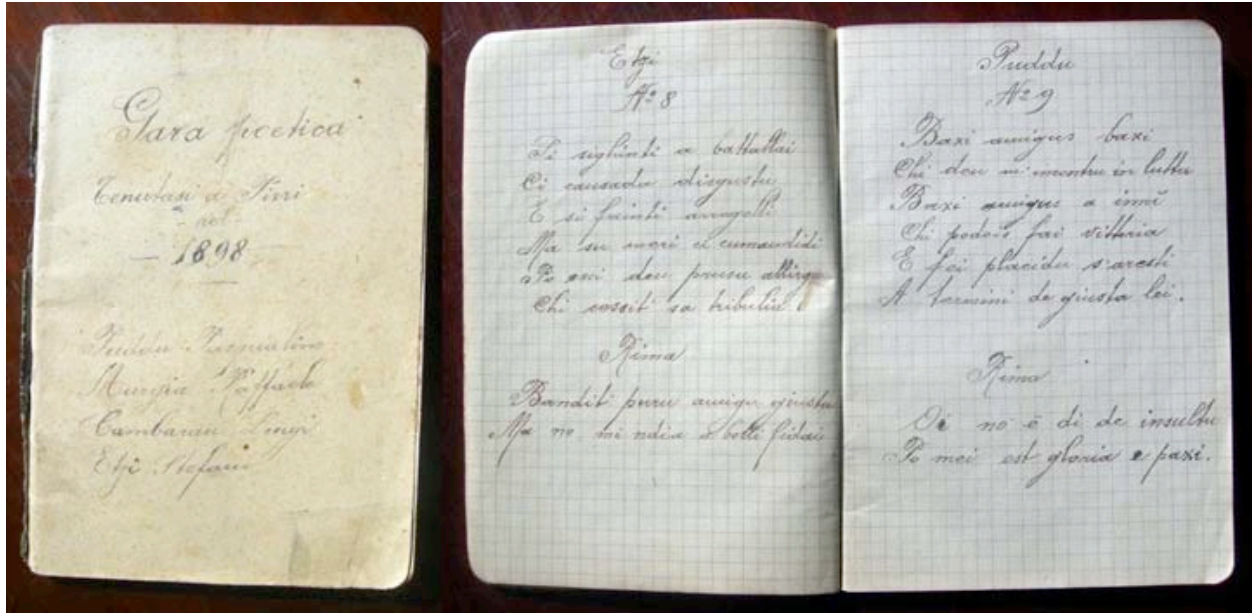 Gara poetica
Tenutasi a Pirri
nel
— 1898 —
Puddu Pasqualino
Murgia Raffaele
Cambarau Luigi
Etzi Stefani
Etzi
Nº 8
Si sighinti a battallai
Ci causada disgustu
E si frinti
Ma su meri et cumandidi
Po essi deu prusu allirgu
Chi cossit sa tribulia.
Rima
Bandit puru amigu giustu
Ma no mi ndia a betti fidai
Puddu
Nº 9
Baxi amigus baxi
Chi deu m'incontru in luttu
Baxi amigus a innì
Chi podeis fai vittoria
E fai placidu s'aresti
A termini de giusta lei.
Rima
Oi no è di de insultu
Po mei est gloria e paxi.